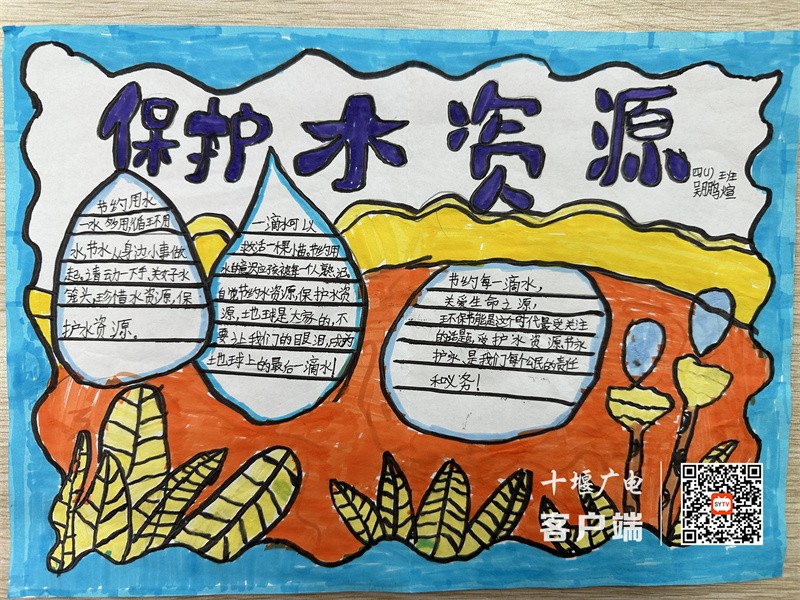 保护水资源
四(1)班
吴鹏煊
节约用水
一水多用循环用
水节水从身边小事做
起。请动一下手,关好水
笼头,珍惜水资源,保
护水资源。
一滴水可以
救活一棵小苗。节约用
水的意识应该被每一个人熟记
自觉节约水资源,保护水资
源,地球是大家的,不
要让我们的眼泪,成为
地球上的最后一滴水!
节约每一滴水,
关爱生命之源,
环保节能是这个时代最受关注
的话题,爱护水资源节水
护水,是我们每个公民的责任
和义务!
十堰广电
客户端
SYTV